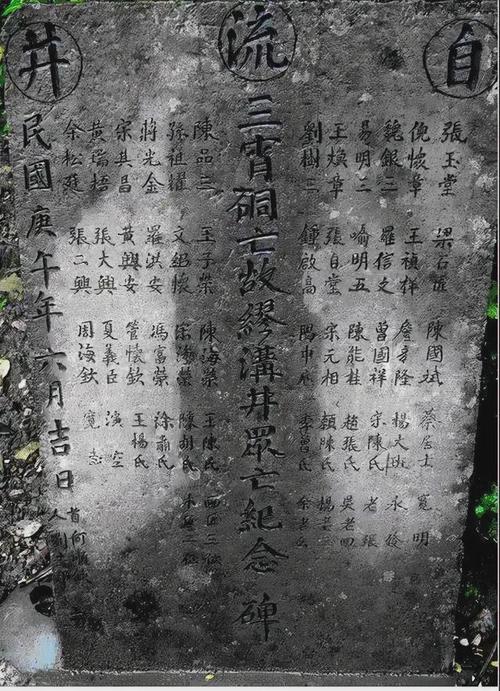 自流井
張玉堂 梁石 陳國斌 蔡居士 寬明
倪懷章 王禎祥 隆 楊大 永
魏銀三 羅信文 曾國祥 宋陳氏 老張
易明三 喻明五 陳能桂 趙張氏 吳老四
王煥章 張自堂 宋元相 顏陳氏 楊老三
劉樹三 鍾啟高 中 李曾氏 余老
三宵硐亡故繆溝井眾亡紀念碑
陳品三 王子榮 陳海榮 王陳氏 西區三位
孫祖 文紹懷 宋海榮 陳胡氏 二位
蔣光金 羅洪安 馮富榮 徐蕭氏
宋其昌 黃興安 管懷欽 王楊氏
黃瑞梧 張大興 夏義臣 演空
余松廷 張二興 周海欽 寬志
民國庚午年六月吉日
首人 何 劉